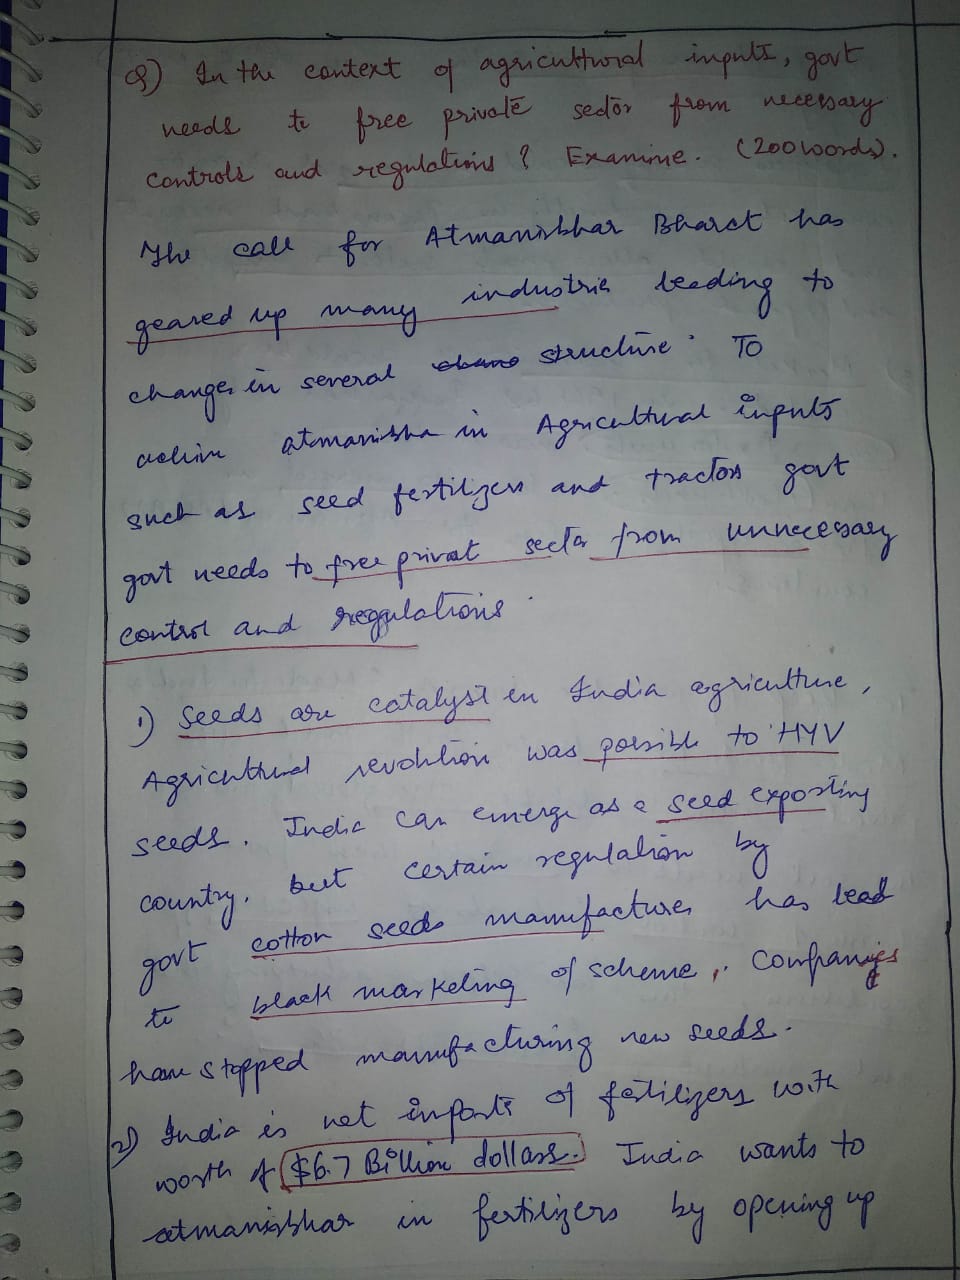 Q) In the context of agricultural inputs, govt
needs to free private sector from necessary
controls and regulations? Examine. (200 words).
The call for Atmanirbhar Bharat has
geared up many industries leading to
changes in several structure. To
achieve atmanirbha in Agricultural inputs
such as seed fertilizers and tractors govt
govt needs to free privat sector from unnecessary
control and regulations.
1) Seeds are catalyst in India agriculture,
Agricultural revolution was possible to HYV
seeds. India can emerge as a seed exporting
country. but certain regulation by
govt cotton seeds manufactures has lead
to black marketing of scheme, Companies
have stopped manufacturing new seeds.
2) India is net imports of fertilizers with
worth of $6.7 Billion dollars. India wants to
atmanirbhar in fertilizers by opening up